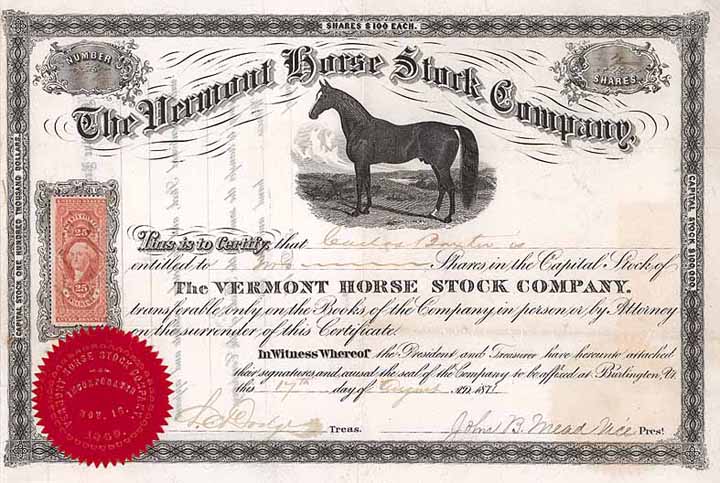 SHARES $100 EACH.
NUMBER
2
SHARES
The Vermont Horse Stock Company.
CAPITAL STOCK ONE HUNDRED THOUSAND DOLLARS.
CAPITAL STOCK $100,000.
25
25
This is to Certify, that Carlos Baxter is
entitled to Two Shares in the Capital Stock of
The VERMONT HORSE STOCK COMPANY.
transferable only on the Books of the Company in person or by Attorney
on the surrender of this Certificate.
In Witness Whereof the President and Treasurer have hereunto attached
their signatures and causd the seal of the Company to be affixed at Burlington, Vt.
this 17th day of August A.D. 187
VERMONT HORSE STOCK COMPANY
INCORPORATED
NOV. 16.
Dodge Treas.
John B. Mead Vice Prest